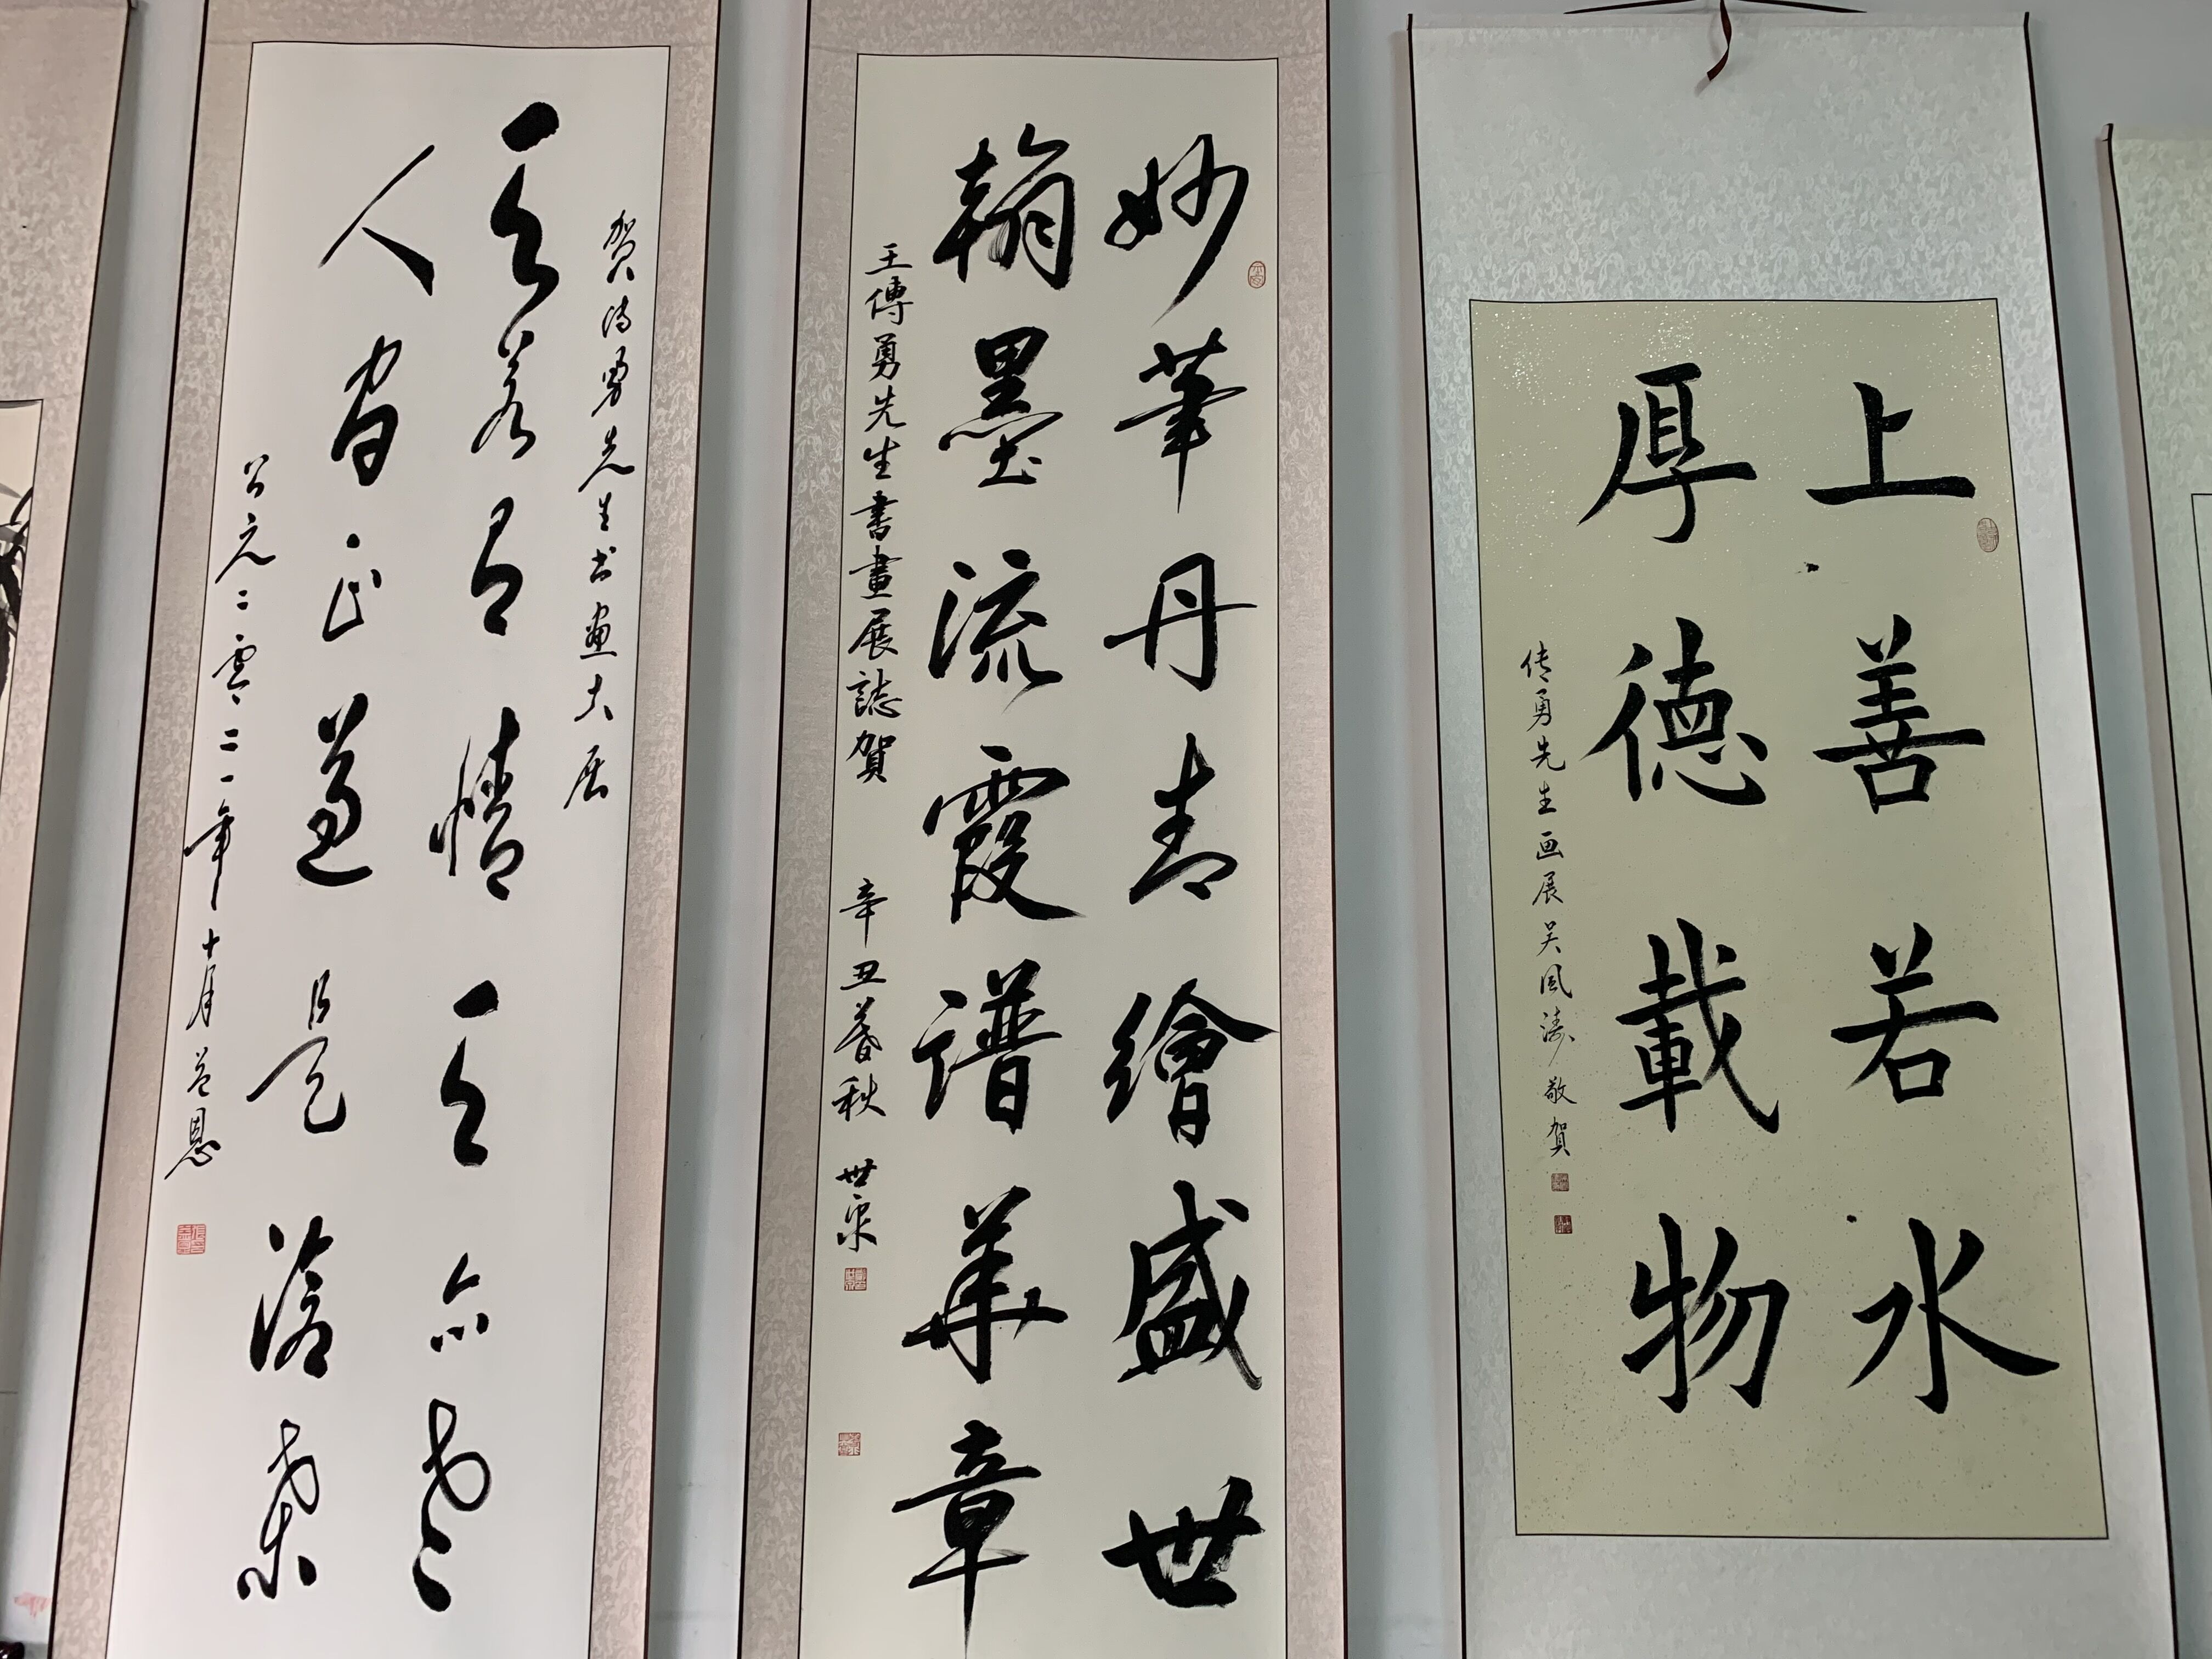 上善若水
厚德载物
传勇先生画展吴风涛敬贺
妙笔丹青繪盛世
翰墨流霞谱華章
王傳勇先生書畫展誌賀
辛丑暮秋 世泉
贺传勇先生书画大展
天若有情天亦老
人间正道是沧桑
公元二零二一年十月益恩